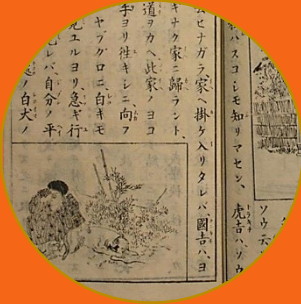 バスコシモ知リマセン、虎吉ハ、ソウ
ヒナガラ家ヘ掛ケ入リタレバ、國吉ハ、ヨ
キナク家ニ歸ラント、
道ヲカヘ、此家ノヨコ
手ヨリ徃キシニ、向フ
ヤブグロニ、白キモ
見ユルヨリ、急ギ行
レバ、自分ノ平
ノ白犬ノ
ソウ云